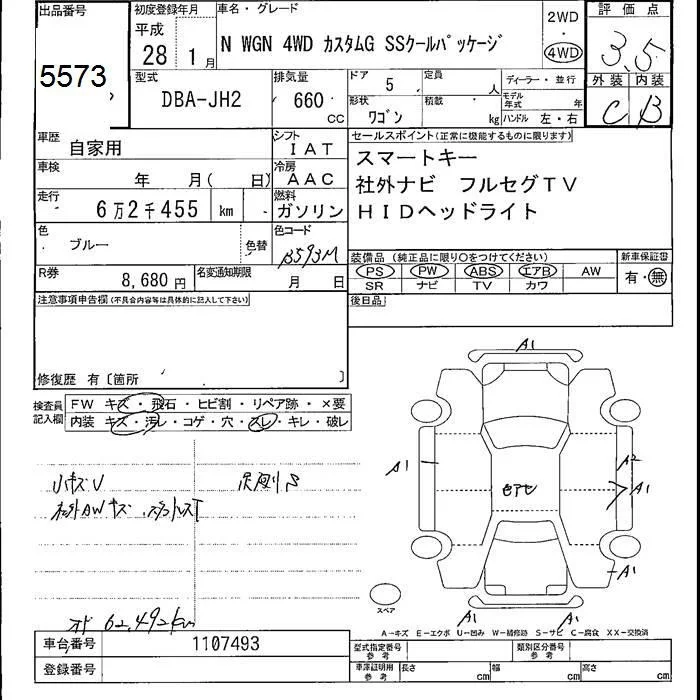 出品番号
5573
初度登録年月
平成
28 1月
車名・グレード
N WGN 4WD カスタムG SSクールパッケージ
2WD
・
4WD
評価点
3.5
外装 内装
C B
型式
DBA-JH2
排気量
660 cc
ドア 5
定員 人
形状 ワゴン
積載 kg
ディーラー・並行
モデル年式 年
ハンドル 左・右
車歴
自家用
シフト
IAT
車検
年 月( 日)
冷房
AAC
走行
6万2千455 km
燃料
ガソリン
色
ブルー
色替
色コード
B593M
R券
8,680円
名変通知期限
月 日
セールスポイント(正常に機能するものに限ります)
スマートキー
社外ナビ フルセグTV
HIDヘッドライト
装備品(純正品に限り○をつけてください)
PS PW ABS エアB AW
SR ナビ TV カワ
新車保証書
有・無
後日品
注意事項申告欄(不具合内容等は具体的に記入して下さい)
修復歴 有〔箇所 〕
検査員記入欄
FW キズ・飛石・ヒビ割・リペア跡・×要
内装 キズ・汚レ・コゲ・穴・スレ・キレ・破レ
小キズU
社外AWキズ
オド 62,492km
A1
A1
A2
A1
色アセ
A1
A1
A1
スペア
A―キズ E―エクボ U―凹み W―補修跡 S―サビ C―腐食 XX―交換済
車台番号
1107493
登録番号
型式指定番号
参考
類別区分番号
参考
車庫証明用
参考
長さ cm
幅 cm
高さ cm